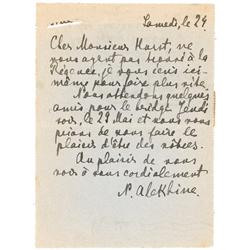 Samedi, le 24.
Cher Monsieur Huist, ne
vous ayant pas trouvé à la
Régence, je vous écris ici-
même pour faire plus vite.
Nous attendons quelques
amis pour le bridge Jeudi
soir, le 29 Mai et nous vous
prions de nous faire le
plaisir d'être des nôtres.
Au plaisir de vous
voir à vous cordialement
N. Alekhine